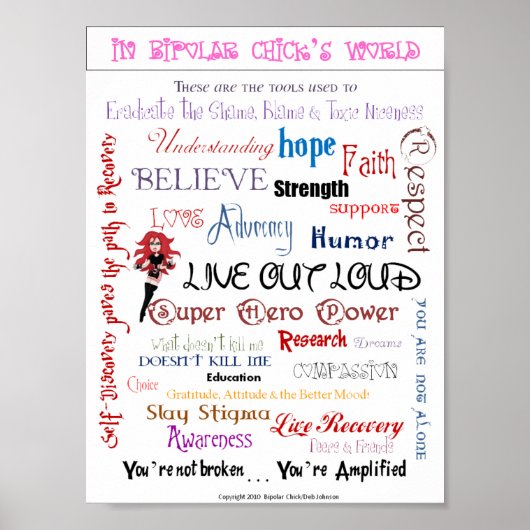 IN BIPOLAR CHICK'S WORLD
These are the tools used to
Eradicate the Shame, Blame & Toxic Niceness
Understanding hope Faith
BELIEVE Strength
SUPPORT
Respect
Self-Discovery paves the path to Recovery
LOVE Advocacy Humor
LIVE OUT LOUD
Super Hero Power
What doesn't kill me Research Dreams
DOESN'T KILL ME
COMPASSION
Education
Choice
Gratitude, Attitude & the Better Mood!
YOU ARE NOT ALONE
Slay Stigma Live Recovery
Awareness Peers & Friends
You're not broken . . . You're Amplified
Copyright 2010 Bipolar Chick/Deb Johnson